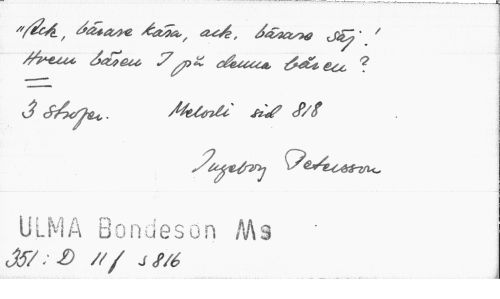 "Ack, bärare kära, ack, bärare säj!
Hvem bären I på denna båren?
3 strofer. Melodi sid 818
Ingeborg Petersson
ULMA Bondeson Ms
351: D 11 f s 816